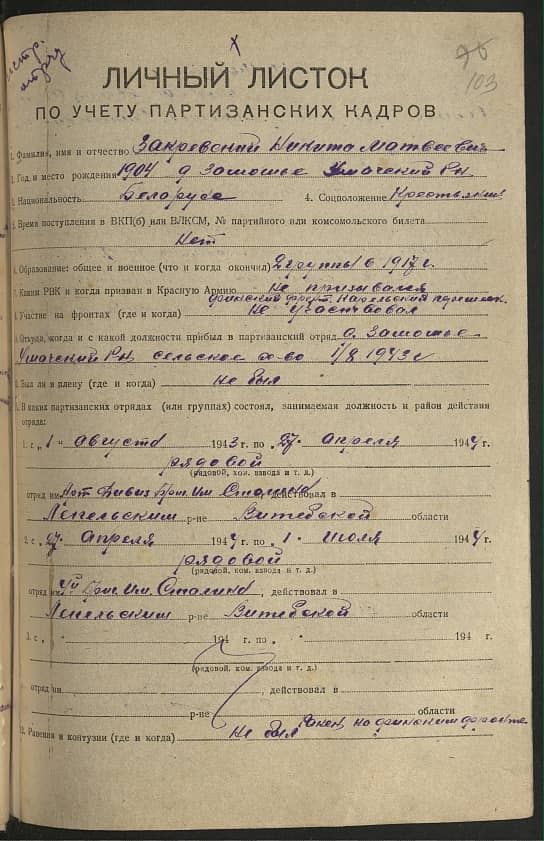 х
96
103
ЛИЧНЫЙ ЛИСТОК
ПО УЧЕТУ ПАРТИЗАНСКИХ КАДРОВ
1. Фамилия, имя и отчество Закревский Никита Матвеевич
2. Год и место рождения 1904 д Замошье Ушачский Рн
3. Национальность: Беларусс 4. Соцположение Крестьянин
5. Время поступления в ВКП(б) или ВЛКСМ, № партийного или комсомольского билета
Нет
6. Образование: общее и военное (что и когда окончил) 2 группы в 1917 г.
7. Каким РВК и когда призван в Красную Армию не призывался
финский фронт. Карельский перешеек
8. Участие на фронтах (где и когда) не участвовал
9. Откуда, когда и с какой должности прибыл в партизанский отряд д. Замошье
Ушачский Рн сельское хо-во 1/8 1943 г
10. Был ли в плену (где и когда) не был
11. В каких партизанских отрядах (или группах) состоял, занимаемая должность и район действия
отряда:
1. с „1" Августа 1943 г. по „27" апреля 1944 г.
рядовой
(рядовой, ком. взвода и т. д.)
отряд им. Бриг. Им Сталина действовал в
Лепельским р-не Витебской области
2. с „27" апреля 1944 г. по „1" июля 1944 г.
рядовой
(рядовой, ком. взвода и т. д.)
отряд им. Бриг. Им. Сталина, действовал в
Лепельским р-не Витебской области
3. с „ " 194 г. по „ " 194 г.
(рядовой, ком. взвода и т. д.)
отряд им. , действовал в
р-не области
12. Ранения и контузии (где и когда) не был ранен на финским фронте